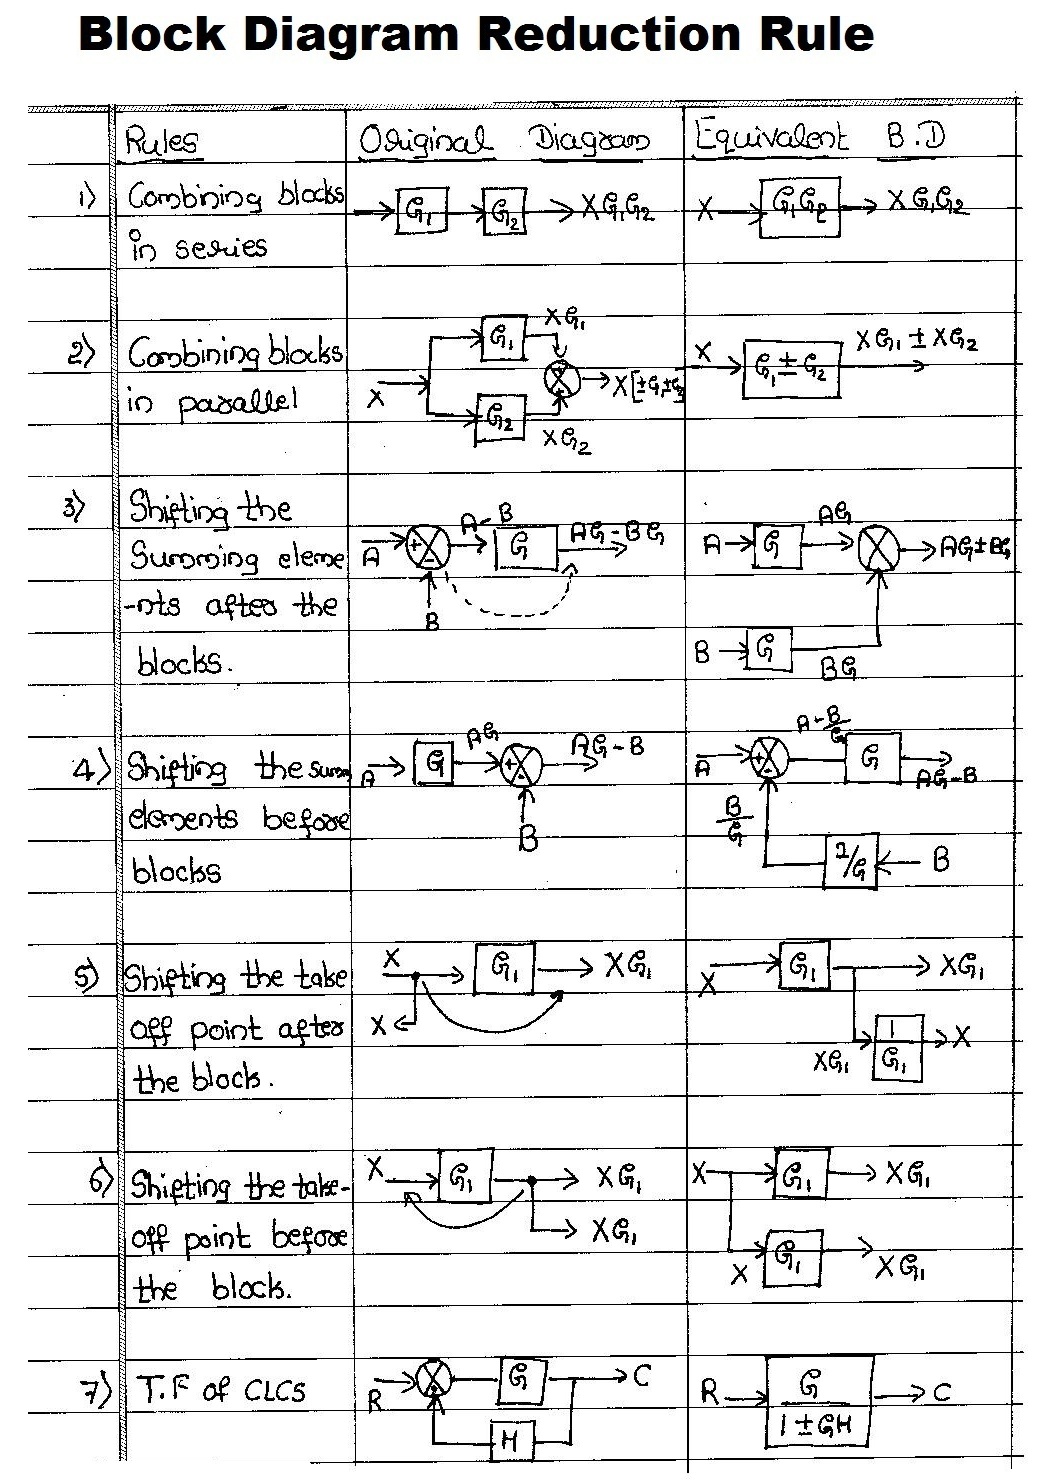 Block Diagram Reduction Rule
Rules Original Diagram Equivalent B.D
1) Combining blocks in series
G1 G2 XG1G2
X G1G2 XG1G2
2) Combining blocks in parallel
X G1 XG1 G2 XG2
X G1±G2 XG1±XG2
3) Shifting the
Summing eleme
-nts after the
blocks.
A + - B A-B G AG-BG
A G AG AG±BG
B G BG
4) Shifting the summ
elements before
blocks
A G AG + - B AG-B
A + - A-B/G G AG-B
B/G 1/G B
5) Shifting the take
off point after
the block.
X G1 XG1
X
X G1 XG1
XG1 1/G1 X
6) Shifting the take-
off point before
the block.
X G1 XG1
XG1
X G1 XG1
X G1 XG1
7) T.F of CLCS
R G C
H
R G/1±GH C